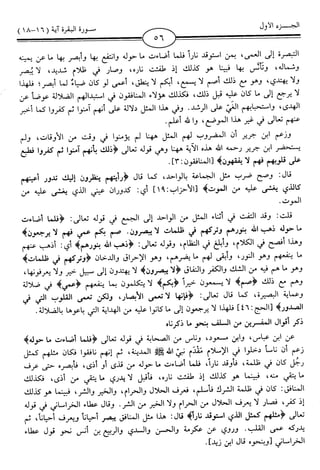 الجـــزء الأول
سورة البقرة آية (١٦-١٨)
٥٦
التبصرة إلى العمى، بمن استوقد ناراً فلما أضاءت ما حوله وانتفع بها وأبصر بها ما عن يمينه
وشماله، وتأنّس بها فبينا هو كذلك إذ طفئت ناره، وصار في ظلام شديد، لا يُبصر
ولا يهتدي، وهو مع ذلك أصم لا يسمع، أبكم لا ينطق، أعمى لو كان ضياءً لما أبصر؛ فلهذا
لا يرجع إلى ما كان عليه قبل ذلك، فكذلك هؤلاء المنافقون في استبدالهم الضلالة عوضاً عن
الهدى، واستحبابهم الغَيّ على الرشد. وفي هذا المثل دلالة على أنهم آمنوا ثم كفروا كما أخبر
عنهم تعالى في غير هذا الموضع، والله أعلم.
وزعم ابن جرير أن المضروب لهم المثل ههنا لم يؤمنوا في وقت من الأوقات، ولم
يستحضر ابن جرير رحمه الله هذه الآية ههنا وهي قوله تعالى ﴿ذلك بأنهم آمنوا ثم كفروا فطبع
على قلوبهم فهم لا يفقهون﴾ [المنافقون: ٣].
قال: وصح ضرب مثل الجماعة بالواحد، كما قال ﴿رأيتهم ينظرون إليك تدور أعينهم
كالذي يغشى عليه من الموت﴾ [الأحزاب: ١٩] أي: كدوران عيني الذي يغشى عليه من
الموت.
قلت: وقد التفت في أثناء المثل من الواحد إلى الجمع في قوله تعالى: ﴿فلما أضاءت
ما حوله ذهب الله بنورهم وتركهم في ظلمات لا يبصرون. صم بكم عمي فهم لا يرجعون﴾
وهذا أفصح في الكلام، وأبلغ في النظام، وقوله تعالى: ﴿ذهب الله بنورهم﴾ أي: أذهب عنهم
ما ينفعهم وهو النور، وأبقى لهم ما يضرهم، وهو الإحراق والدخان ﴿وتركهم في ظلمات﴾
وهو ما هم فيه من الشك والكفر والنفاق ﴿لا يبصرون﴾ لا يهتدون إلى سبيل خير ولا يعرفونها،
وهم مع ذلك ﴿صم﴾ لا يسمعون خيراً ﴿بكم﴾ لا يتكلمون بما ينفعهم ﴿عمي﴾ في ضلالة
وعماية البصيرة، كما قال تعالى: ﴿فإنها لا تعمى الأبصار، ولكن تعمى القلوب التي في
الصدور﴾ [الحج: ٤٦] فلهذا لا يرجعون إلى ما كانوا عليه من الهداية التي باعوها بالضلالة.
ذكر أقوال المفسرين من السلف بنحو ما ذكرناه
عن ابن عباس، وابن مسعود، وناس من الصحابة في قوله تعالى ﴿فلما أضاءت ما حوله﴾
زعم أن ناساً دخلوا في الإسلام مَقْدَم نبيّ الله ﷺ المدينة، ثم إنهم نافقوا فكان مثلهم كمثل
رجُل كان في ظلمة، فأوقد ناراً، فلما أضاءت ما حوله من قذى أو أذى، فأبصره حتى عرف
ما يتقي منه، فبينما هو كذلك إذ طفئت ناره، فأقبل لا يدري ما يتقي من أذى، فكذلك
المنافق: كان في ظلمة الشرك فأسلم، فعرف الحلال والحرام، والخير والشر، فبينما هو كذلك
إذ كفر، فصار لا يعرف الحلال من الحرام ولا الخير من الشر. وقال عطاء الخراساني في قوله
تعالى ﴿مثلهم كمثل الذي استوقد ناراً﴾ قال: هذا مثل المنافق يبصر أحياناً ويعرف أحياناً، ثم
يدركه عمى القلب. وروي عن عكرمة والحسن والسدي والربيع بن أنس نحو قول عطاء
الخراساني [وبنحوه قال ابن زيد].